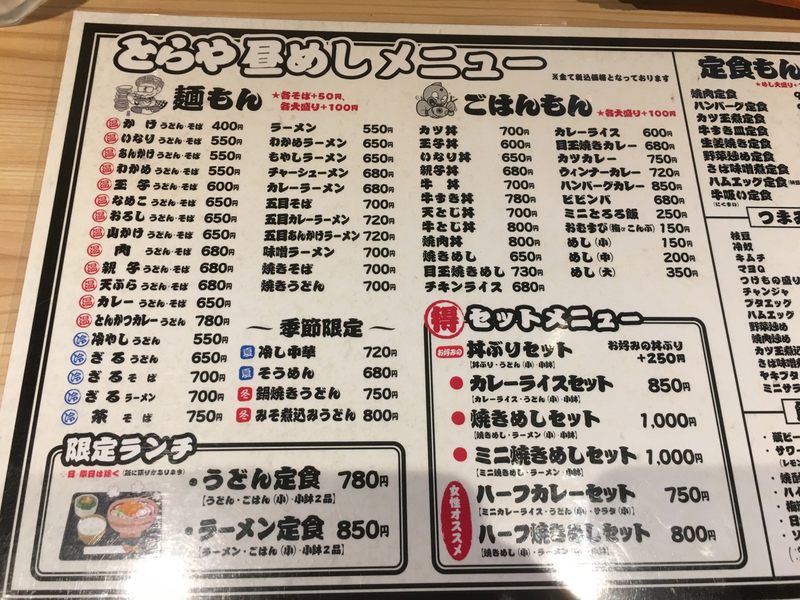 とらや昼めしメニュー
※全て税込価格となっております
麺もん
★各そば+50円、
各大盛り+100円
温 かけ うどん・そば 400円
温 いなり うどん・そば 550円
温 あんかけ うどん・そば 550円
温 わかめ うどん・そば 550円
温 玉子 うどん・そば 600円
温 なめこ うどん・そば 650円
温 おろし うどん・そば 650円
温 山かけ うどん・そば 650円
温 肉 うどん・そば 680円
温 親子 うどん・そば 680円
温 天ぷら うどん・そば 680円
温 カレー うどん・そば 650円
温 とんかつカレー うどん 780円
冷 冷やし うどん 550円
冷 ざる うどん 650円
冷 ざる そば 700円
冷 ざる ラーメン 700円
冷 茶 そば 750円
ラーメン 550円
わかめラーメン 650円
もやしラーメン 650円
チャーシューメン 680円
カレーラーメン 680円
五目そば 700円
五目カレーラーメン 720円
五目あんかけラーメン 720円
味噌ラーメン 700円
焼きそば 700円
焼きうどん 700円
〜 季節限定 〜
夏 冷し中華 720円
夏 そうめん 680円
冬 鍋焼きうどん 750円
冬 みそ煮込みうどん 800円
限定ランチ
日・祭日は除く
うどん定食 780円
【うどん・ごはん(小)・小鉢2品】
ラーメン定食 850円
【ラーメン・ごはん(小)・小鉢2品】
ごはんもん
★各大盛り+100円
カツ丼 700円
玉子丼 600円
いなり丼 650円
親子丼 680円
牛丼 700円
牛すき丼 780円
天とじ丼 700円
牛とじ丼 800円
焼肉丼 800円
焼めし 650円
目玉焼きめし 730円
チキンライス 680円
カレーライス 600円
目玉焼きカレー 680円
カツカレー 750円
ウィンナーカレー 720円
ハンバーグカレー 850円
ビビンバ 680円
ミニとろろ飯 250円
おむすび(梅かこんぶ) 150円
めし(小) 150円
めし(中) 200円
めし(大) 350円
得 セットメニュー
お好みの 丼ぶりセット
お好みの丼ぶり
+250円
【丼ぶり・うどん(小)・小鉢】
カレーライスセット 850円
【カレーライス・うどん(小)・小鉢】
焼きめしセット 1,000円
【焼きめし・ラーメン(小)・小鉢】
ミニ焼きめしセット 1,000円
【ミニ焼きめし・ラーメン・小鉢】
女性オススメ
ハーフカレーセット 750円
【ミニカレーライス・うどん(小)・サラダ(小)】
ハーフ焼きめしセット 800円
【焼きめし(小)・ラーメン(小)・小鉢】
定食もん
★めし大盛り+
焼肉定食
ハンバーグ定食
カツ玉煮定食
牛すき皿定食
生姜焼き定食
野菜炒め定食
さば味噌煮定食
ハムエッグ定食
牛吸い定食
つまみ
枝豆
冷奴
キムチ
マヨQ
つけもの盛り
チャンジャ
ブタエッグ
ハムエッグ
野菜炒め
焼肉炒め
カツ玉煮込
さば味噌煮
ヤキブタ
ミニサラダ